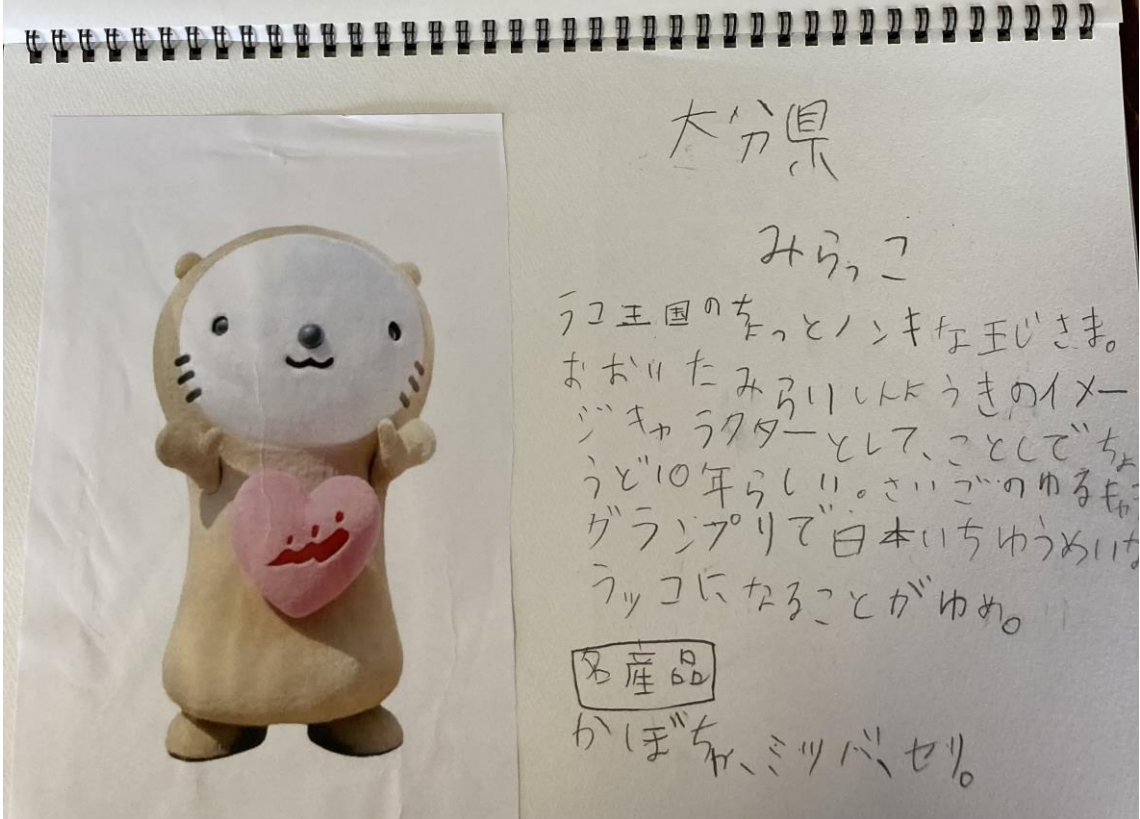 大分県
みらっこ
ラコ王国のちょっとノンキな王じさま。
おおいたみらいしんようきのイメー
ジキャラクターとして、ことしでちょ
うど10年らしい。さいごのゆるキャラ
グランプリで日本いちゆうめいな
ラッコになることがゆめ。
名産品
かぼちゃ、ミツバ、セリ。